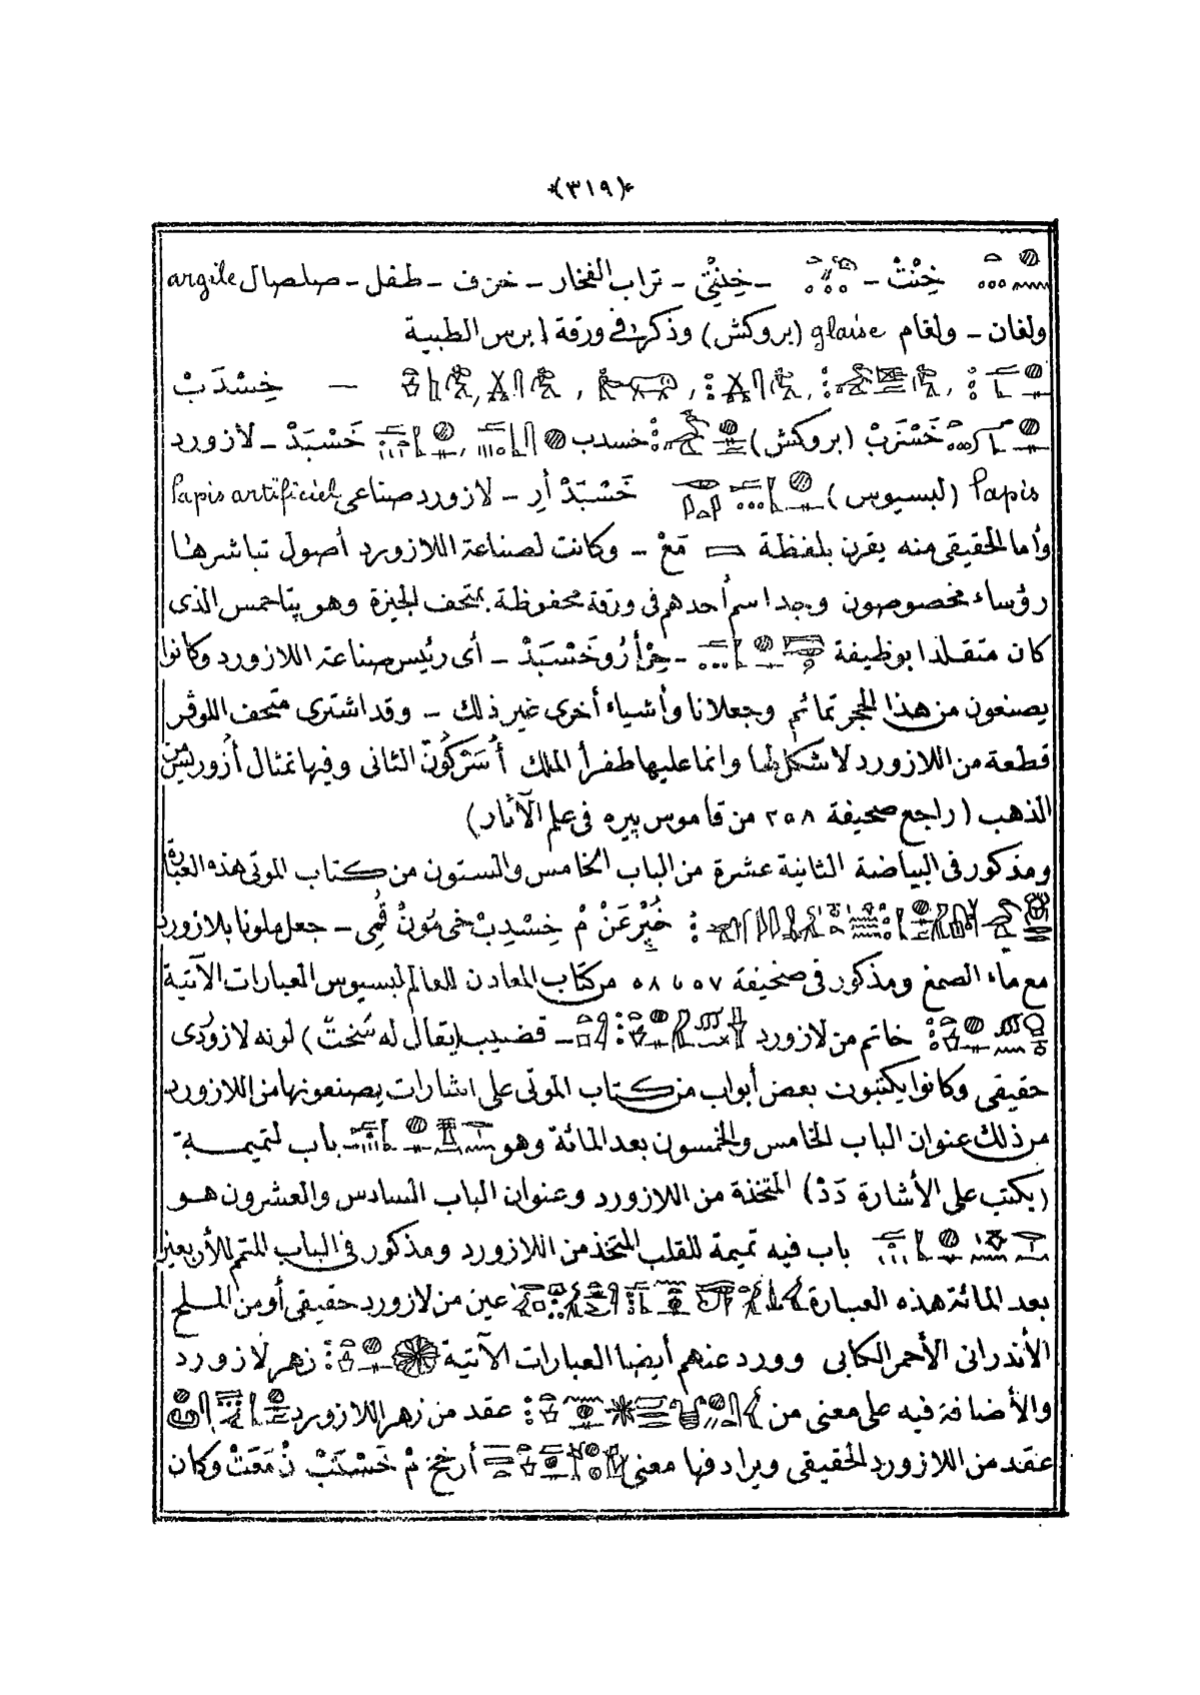 ﴿٣١٩﴾
خِنْتْ - خِنِتِى - تراب الفخار - خزف - طفل - صلصال argile
ولغان - ولغام glaise (بروكش) وذكرت فى ورقة ابرس الطبية
— خِسْدَبْ
خَسْتَبْ (بروكش) خسدب خَسْبَدْ - لازورد
lapis (لبسيوس) خَسْبَدْ أرِ - لازورد صناعى lapis artificiel
وأما الحقيقى منه يقرن بلفظة مَعْ - وكانت لصناعة اللازورد أصول تباشرها
رؤساء مخصوصون وجد اسم أحدهم فى ورقة محفوظة بمتحف الجيزة وهو پتاحمس الذى
كان متقلدا بوظيفة - حِرْأرُوخَسْبَدْ - أى رئيس صناعة اللازورد وكانوا
يصنعون من هذا الحجر تمائم وجعلانا وأشياء أخرى غير ذلك - وقد اشترى متحف اللوڤر
قطعة من اللازورد لا شكل لها وانما عليها طغرأ الملك أُسَرْكُونْ الثانى وفيها تمثال أزوريس من
الذهب (راجع صحيفة ٢٥٨ من قاموس پيره فى علم الآثار)
ومذكور فى البياضة الثانية عشرة من الباب الخامس والستون من كتاب الموتى هذه العبارة
خُپْرْعَنْ مْ خِسْدِبْ قُمِى - جعل ملونا بلازورد
مع ماء الصمغ ومذكور فى صحيفة ٥٧ ، ٥٨ من كتاب المعادن للعالم لبسيوس العبارات الآتية
خاتم من لازورد - قضيب (يقال له سَخِتْ) لونه لازوردى
حقيقى وكانوا يكتبون بعض أبواب من كتاب الموتى على اشارات يصنعونها من اللازورد
من ذلك عنوان الباب الخامس والخمسون بعد المائة وهو باب لتميمة
(يكتب على الأشارة دَدْ) المتخذة من اللازورد وعنوان الباب السادس والعشرون هو
باب فيه تميمة للقلب المتخذ من اللازورد ومذكور فى الباب المتمم للأربعين
بعد المائة هذه العبارة عين من لازورد حقيقى أو من الملح
الأندرانى الأحمر الكابى وورد عنهم أيضا العبارات الآتية زهر لازورد
والأضافة فيه على معنى من عقد من زهر اللازورد
عقد من اللازورد الحقيقى ويرادفها معنى أرخخ مْ خَسْتَبْ نْمَعَتْ وكان